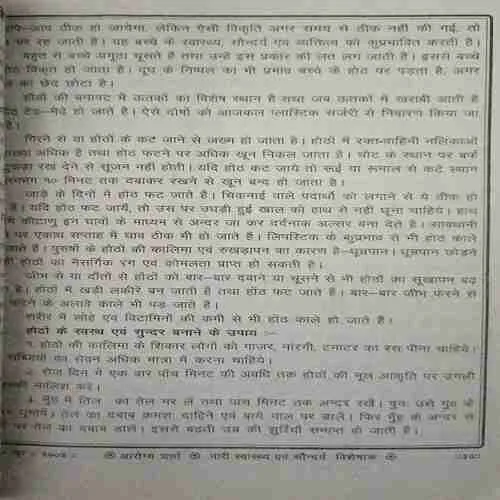 आप ठीक हो जायेगा, लेकिन ऐसी विकृति अगर समय से ठीक नहीं की गई, तो
पर रह जाती है। यह बच्चे के स्वास्थ्य, सौन्दर्य एवं व्यक्तित्व को कुप्रभावित करती है।
बहुत से बच्चे अंगूठा चूसते हैं तथा उन्हें इस प्रकार की लत लग जाती है। इससे बच्चे
विकृत हो जाता है। दूध के निप्पल का भी प्रभाव बच्चे के होंठ पर पड़ता है, अगर
का छेद छोटा है।
होंठों की बनावट में ऊतकों का विशेष स्थान है तथा जब ऊतकों में खराबी आती है
टेढ़े-मेढ़े हो जाते हैं। ऐसे दोषों को आजकल प्लास्टिक सर्जरी से निवारण किया जा
है।
गिरने से या होंठों के कट जाने से जख्म हो जाता है। होंठों में रक्त-वाहिनी नलिकाओं
अधिक है तथा होंठ फटने पर अधिक खून निकल जाता है। चोट के स्थान पर बर्फ
रख देने से सूजन नहीं होती। यदि होंठ कट जाये तो रूई या रूमाल से कटे स्थान
१० मिनट तक दबाकर रखने से खून बन्द हो जाता है।
जाड़े के दिनों में होंठ फट जाते हैं। चिकनाई वाले पदार्थों को लगाने से ये ठीक हो
हैं। यदि होंठ फट जायें, तो उस पर उघड़ी हुई खाल को हाथ से नहीं छूना चाहिये। हाथ
कीटाणु इन घावों के माध्यम से अन्दर जा कर दर्दनाक अल्सर बना देते हैं। सावधानी
पर एकाध सप्ताह में घाव ठीक भी हो जाते हैं। लिपस्टिक के कुप्रभाव से भी होंठ काले
जाते हैं। पुरुषों के होंठों की कालिमा एवं रुखड़ापन का कारण है-धूम्रपान। धूम्रपान छोड़ने
ही होंठों का नैसर्गिक रंग एवं कोमलता प्राप्त हो सकती है।
जीभ से या दाँतों से होंठों को बार-बार दबाने या चूसने से भी होंठों का सूखापन बढ़
है। होंठों में खड़ी लकीरें बन जाती हैं तथा होंठ फट जाते हैं। बार-बार जीभ फेरने से
फटने के अलावे काले भी पड़ जाते हैं।
शरीर में लोहे एवं विटामिनों की कमी से भी होंठ काले हो जाते हैं।
होंठों के स्वस्थ एवं सुन्दर बनाने के उपाय :-
१. होंठों की कालिमा के शिकार लोगों को गाजर, नारंगी, टमाटर का रस पीना चाहिये।
सब्जियों का सेवन अधिक मात्रा में करना चाहिये।
रोज दिन में एक बार पाँच मिनट की अवधि तक होंठों की मूल आकृति पर उंगली
मालिश करें।
मुँह में तिल का तेल भर लें तथा पांच मिनट तक अन्दर रखें। पुनः उसे मुँह के
घुमायें। तेल का दबाव क्रमशः दाहिने एवं बायें गाल पर डालें। फिर मुँह के अन्दर से
पर तेल का दबाव डालें। इससे बढ़ती उम्र की झुर्रियाँ समाप्त हो जाती हैं।
आरोग्य धाम नारी स्वास्थ्य एवं सौन्दर्य विशेषांक